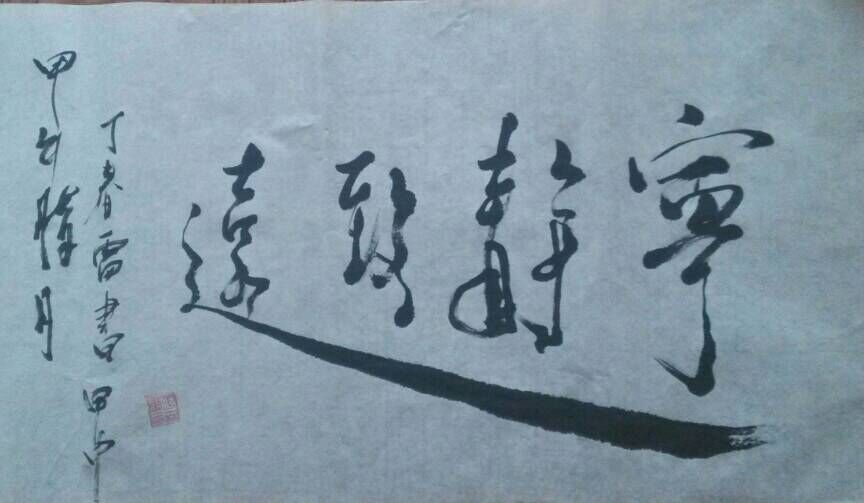 寧靜致遠
丁春雷書甲午
甲午臘月